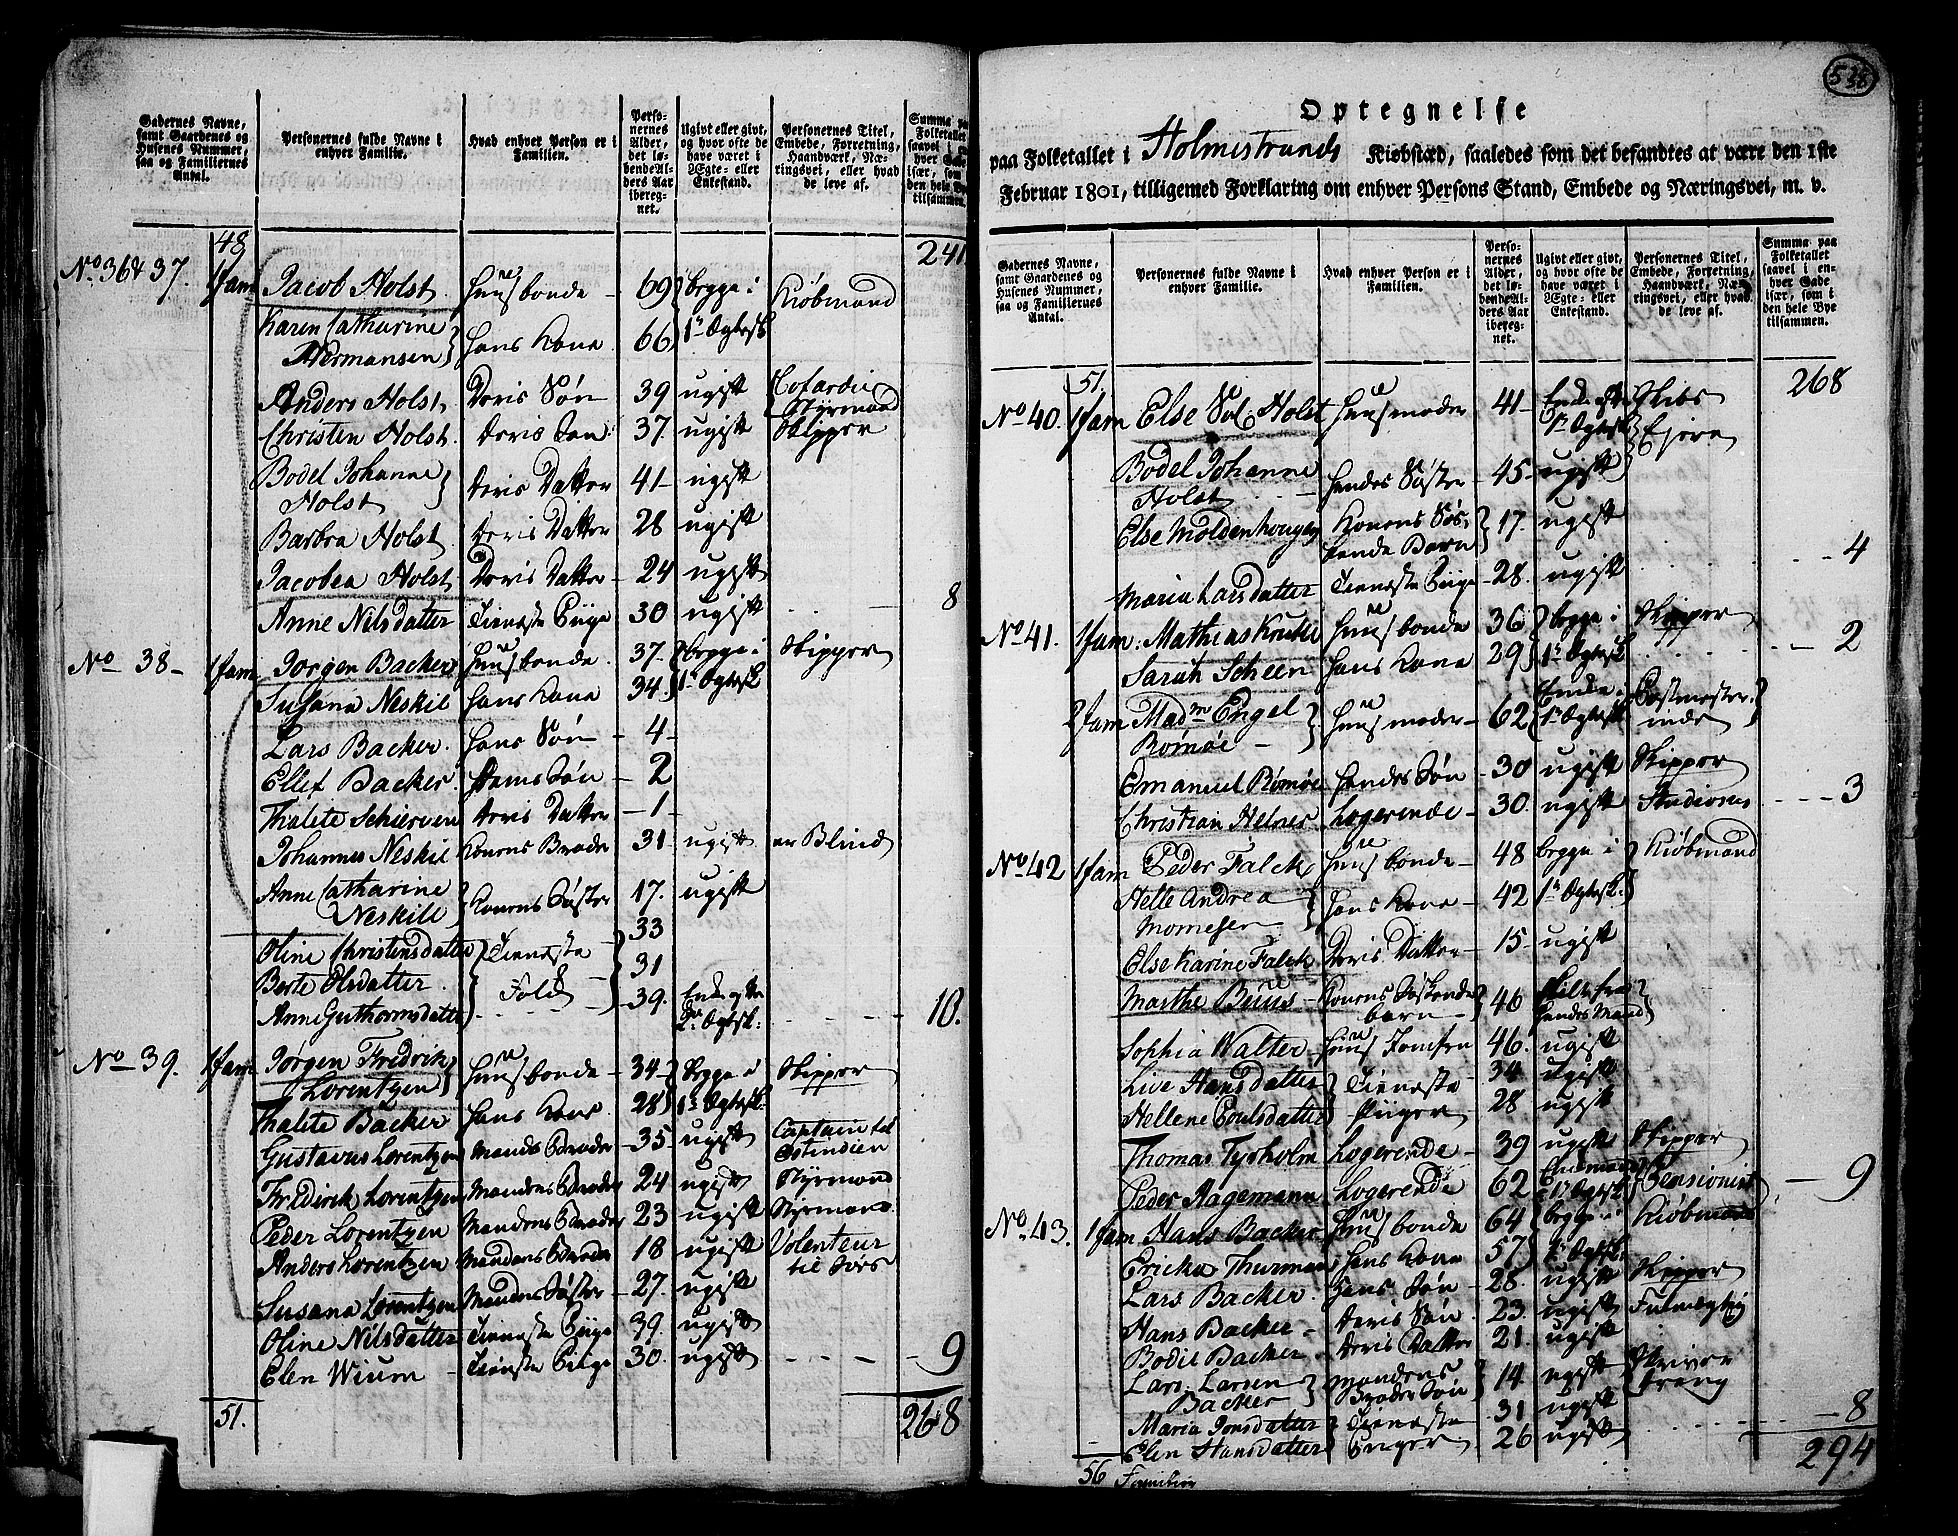 538
Gadernes Navne,
samt Gaardenes og
Husenes Nummer,
saa og Familiernes
Antal.
Personernes fulde Navne i
enhver Familie.
Hvad enhver Person er i
Familien.
Perso-
nernes
Alder,
det lø-
bende Al-
ders Aar
ibereg-
net.
Ugivt eller givt,
og hvor ofte de
have været i
Ægte- eller
Enkestand.
Personernes Titel,
Embede, Forretning,
Haandværk, Næ-
ringsvei, eller hvad
de leve af.
Summa paa
Folketallet
saavel i en-
hver Gade
især, som i
den hele Bye
tilsammen.
48 241
No 36 & 37. 1 fam Jacob Holst Huusbonde 69 begge i Kiøbmand
Karen Catharine
Hermansen Hans Kone 66 1te Ægtesk
Anders Holst Deris Søn 39 ugift Cofardie
Styrmand
Christen Holst Deris Søn 37 ugift Skipper
Bodel Johanne
Holst Deris Datter 41 ugift
Barbra Holst Deris Datter 28 ugift
Jacobea Holst Deris Datter 24 ugift
Anne Nilsdatter Tieneste Piige 30 ugift 8
No 38 1 fam Jørgen Backer Huusbonde 37 begge i Skipper
Susana Neskil Hans Kone 34 1te Ægtesk
Lars Backer Hans Søn 4
Ellef Backer Hans Søn 2
Thalete Schierven Deris Datter 1
Johannes Neskil Konens Broder 31 ugift er Blind
Anne Catharine
Neskill Konens Søster 17 ugift
Oline Christensdatter Tieneste 33
Berte Olsdatter Folk 31
Anne Guthormsdatter 39 Enke efter
2de Ægtesk 10
No 39 1 fam Jørgen Fredrik
Lorentzen Huusbonde 34 begge i Skipper
Thalete Backer Hans Kone 28 1te Ægtesk
Gustavus Lorentzen Mands Broder 35 ugift Captain til
Ostindien
Friderick Lorentzen Mandens Broder 24 ugift Styrmand
Peder Lorentzen Mandens Broder 23 ugift Styrmand
Anders Lorentzen Mandens Broder 18 ugift Volenteur
til Søes
Susana Lorentzen Mandens Søster 27 ugift
Oline Nilsdatter Tieneste Piige 39 ugift
Elen Wium Tieneste Piige 30 ugift 9
51. 268
Optegnelse
paa Folketallet i Holmestrands Kiøbstæd, saaledes som det befandtes at være den 1ste
Februar 1801, tilligemed Forklaring om enhver Persons Stand, Embede og Næringsvei, m. v.
Gadernes Navne,
samt Gaardenes og
Husenes Nummer,
saa og Familiernes
Antal.
Personernes fulde Navne i
enhver Familie.
Hvad enhver Person er i
Familien.
Perso-
nernes
Alder,
det lø-
bende Al-
ders Aar
ibereg-
net.
Ugivt eller givt,
og hvor ofte de
have været i
Ægte- eller
Enkestand.
Personernes Titel,
Embede, Forretning,
Haandværk, Næ-
ringsvei, eller hvad
de leve af.
Summa paa
Folketallet
saavel i en-
hver Gade
især, som i
den hele Bye
tilsammen.
51. 268
No 40. 1 fam Else Sal Holst Huusmoder 41 Enke efter Skibs
1te Ægtesk Ejere
Bodel Johanne
Holst Hendes Søster 45 ugift
Else Moldenhouger Konens Søs-
kende Barn 17 ugift
Maria Larsdatter Tieneste Piige 28 ugift 4
No 41. 1 fam Mathias Kruke Huusbonde 36 begge i Skipper
Sarah Scheen Hans Kone 29 1te Ægtesk 2
2 fam Madm Engel
Romøe Huusmoder 62 Enke i
1te Ægtesk Postmester-
inde
Emanuel Rømøe Hendes Søn 30 ugift Skipper
Christian Helnes Logerende 30 ugift Studiosus 3
No 42 1 fam Peder Falck Huusbonde 48 begge i Kiøbmand
Helle Andrea
Momesen Hans Kone 42 1te Ægtesk
Else Karine Falck Deris Datter 15 ugift
Marthe Buus Konens Søskende
barn 46 skilt fra
hendes Mand
Sophia Walter Huus Jomfru 46 ugift
Live Hansdatter Tieneste 34 ugift
Hellene Poulsdatter Piiger 28 ugift
Thomas Tysholm Logerende 39 ugift Skipper
Peder Hagemann Logerende 62 Enkemand
1te Ægtesk Pensionist 9
No 43. 1 fam Hans Backer Huusbonde 64 begge i Kiøbmand
Ericka Thurman Hans Kone 57 1te Ægtesk
Lars Backer Hans Søn 28 ugift Skipper
Hans Backer Deris Søn 23 ugift Fulmægtig
Bodil Backer Deris Datter 21 ugift
Lars Larsen
Backer Mandens
Broder Søn 14 ugift Skriver
Dreng
Maria Jonsdatter Tieneste 31 ugift
Elen Hansdatter Piiger 26 ugift 8
56 Familier 294